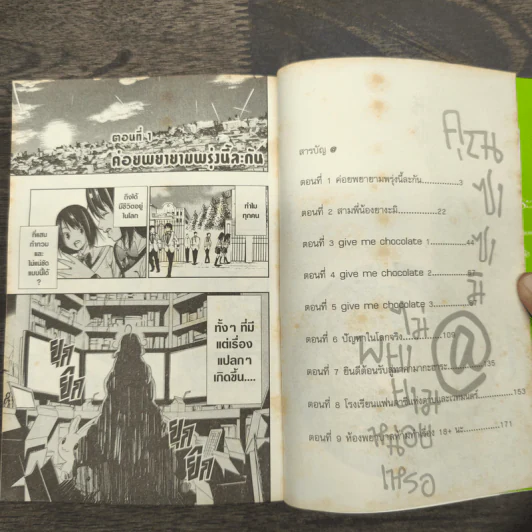 ตอนที่ 1
ค่อยพยายามพรุ่งนี้ละกัน
ทำไม
ทุกคน
ถึงได้
มีชีวิตอยู่
ในโลก
ที่แสน
กำกวม
และ
ไม่แน่ชัด
แบบนี้ได้
?
ทั้งๆ ที่มี
แต่เรื่อง
แปลกๆ
เกิดขึ้น....
สารบัญ @
ตอนที่ 1 ค่อยพยายามพรุ่งนี้ละกัน..............3
ตอนที่ 2 สามพี่น้องยางะมิ..............22
ตอนที่ 3 give me chocolate 1..............44
ตอนที่ 4 give me chocolate 2..............
ตอนที่ 5 give me chocolate 3..............
ตอนที่ 6 ปัญหาในโลกจริง..............109
ตอนที่ 7 ยินดีต้อนรับ..............135
ตอนที่ 8 โรงเรียน..............153
ตอนที่ 9 ห้องพยาบาล 18+ นะ..............171
คุณ
ซา
ซา
มิ
@
ไม่
พยา
ยาม
หน่อย
เหรอ